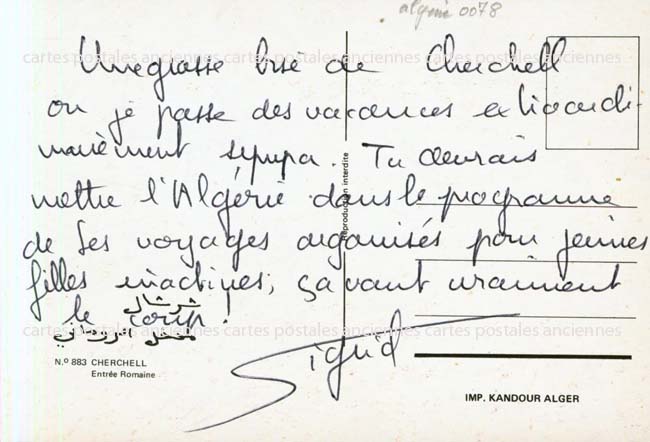 algerie 0078
cartes postales anciennes cartes postales anciennes cartes postales anciennes
Une grosse bise de Cherchell
ou je passe des vacances extraordi-
nairement sympa. Tu devrais
mettre l'Algérie dans le programme
de tes voyages organisés pour jeunes
filles inactives, ça vaut vraiment
le coup!
شرشال
cartes postales anciennes cartes postales anciennes cartes postales anciennes
Sigrid
N.º 883 CHERCHELL
Entrée Romaine
Reproduction interdite
IMP. KANDOUR ALGER